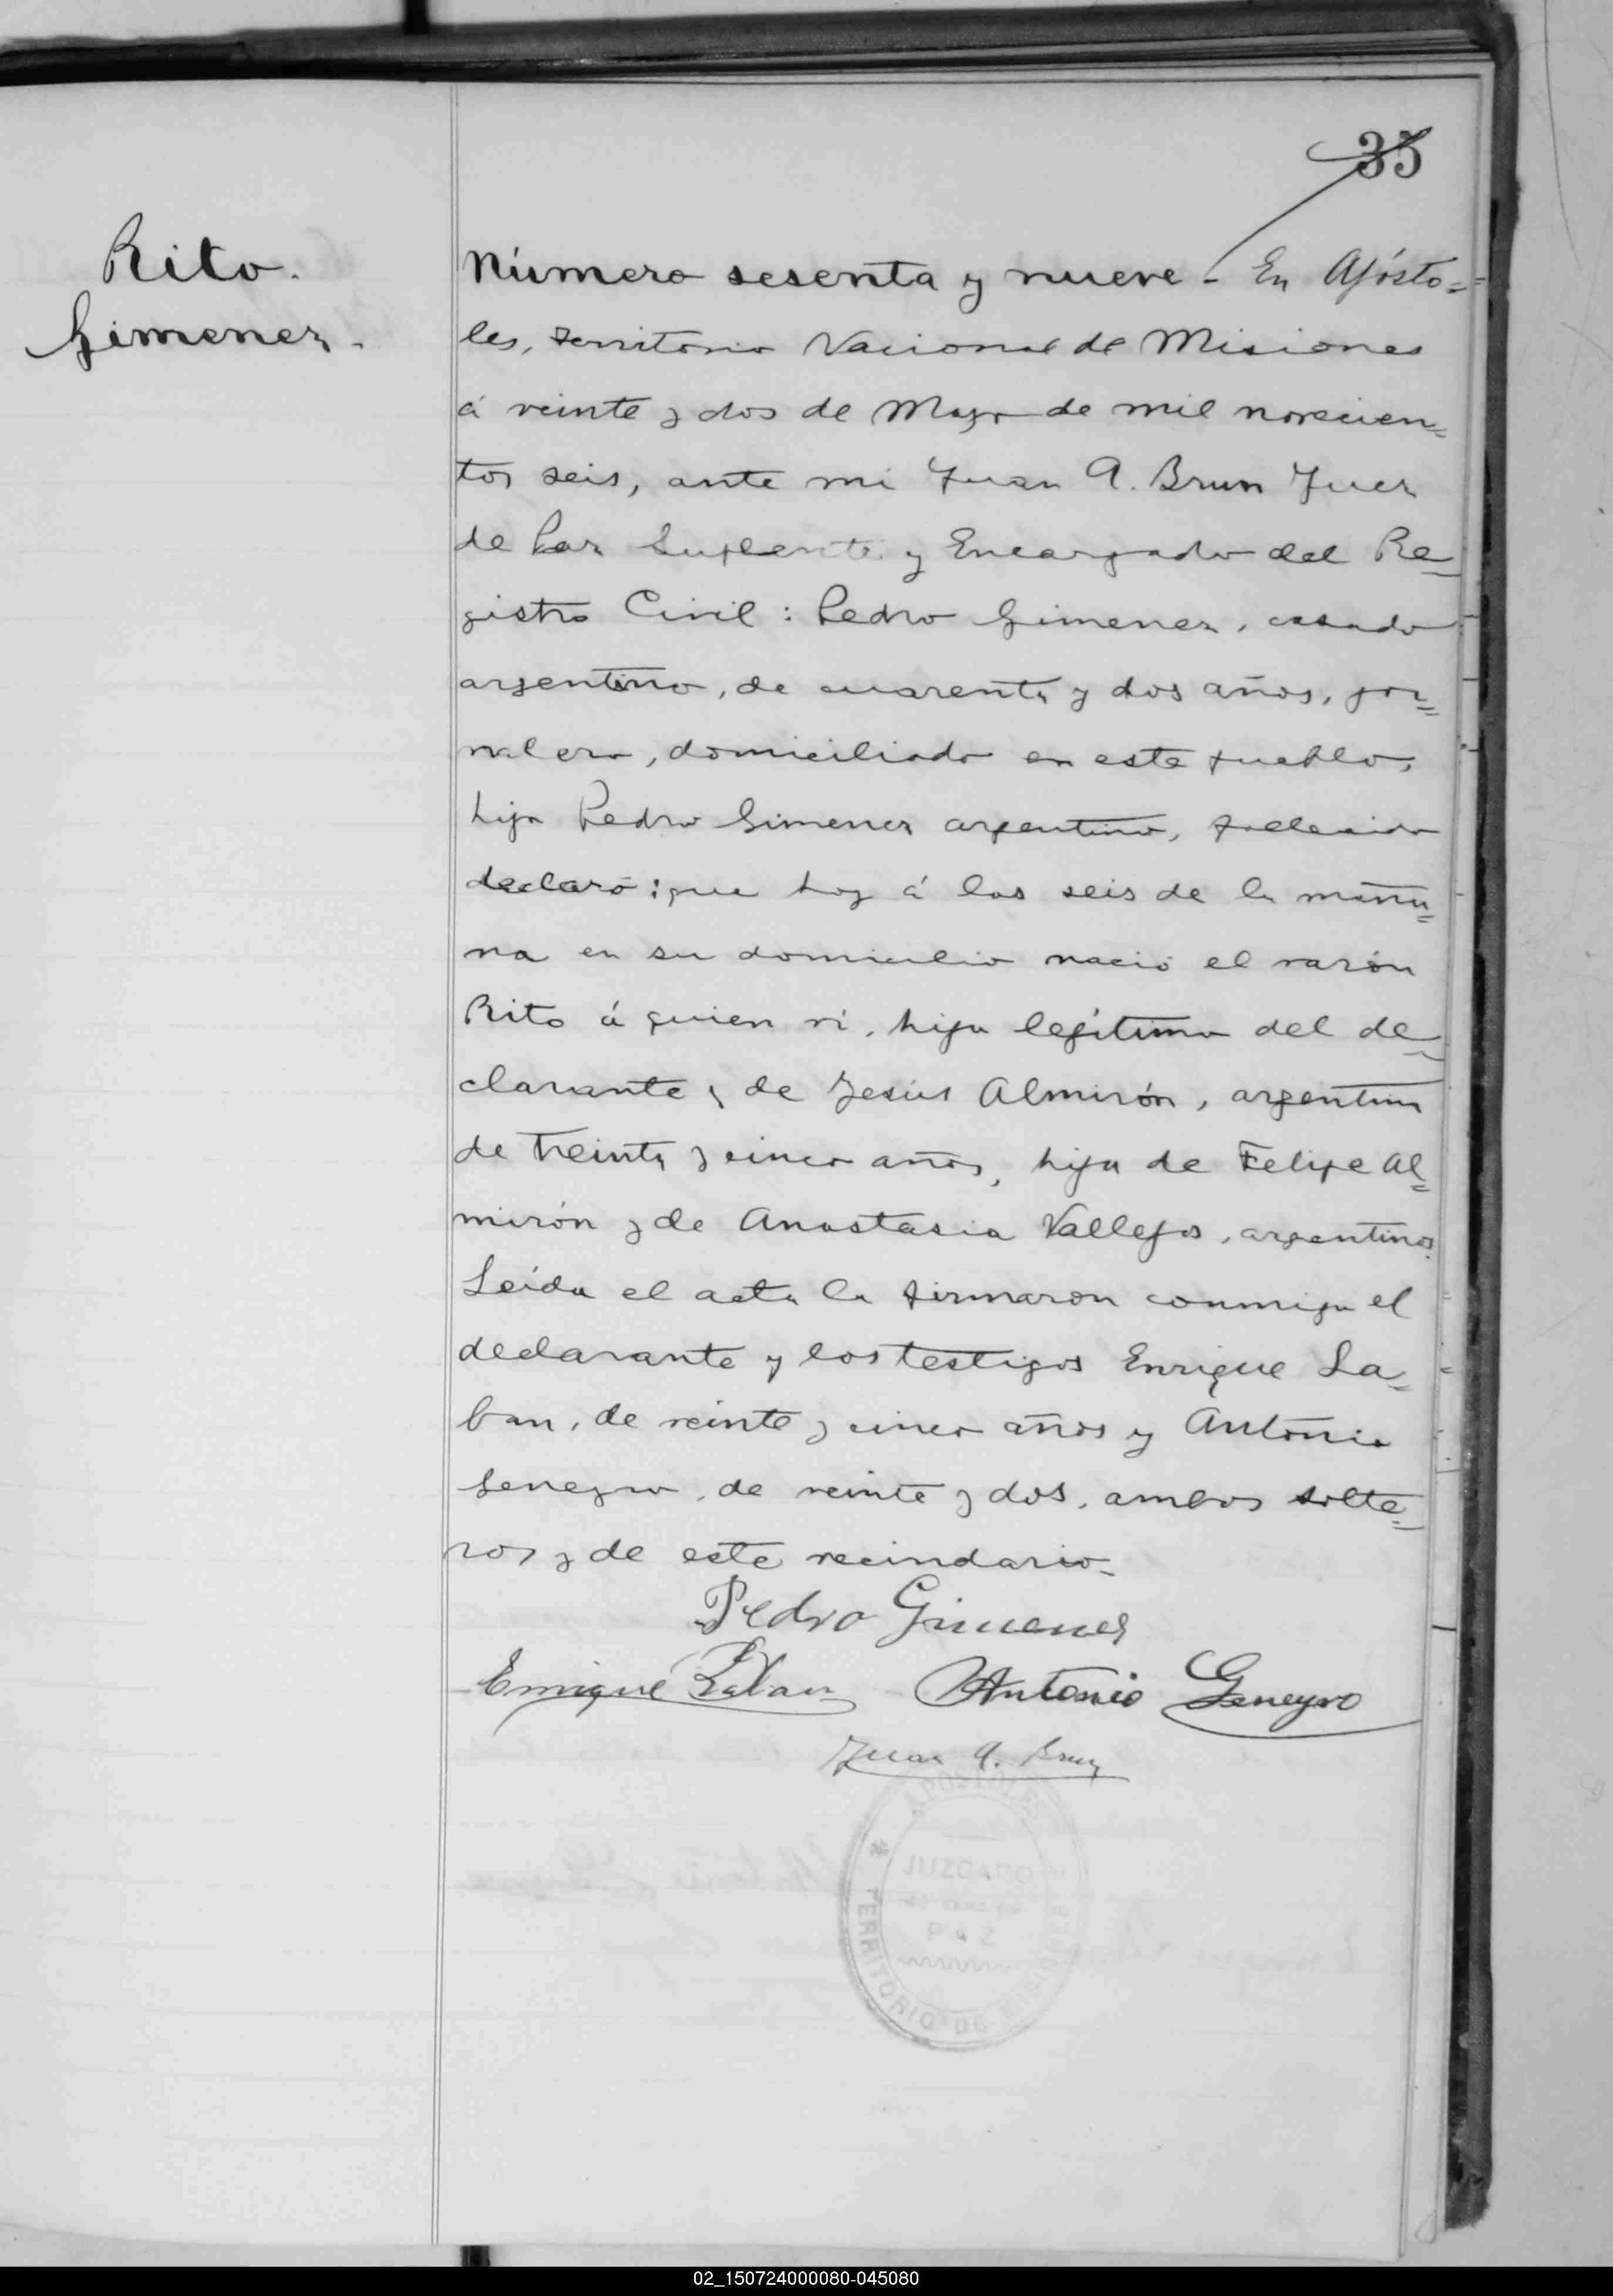 35
Rito.
Gimenez.
Número sesenta y nueve - En Apósto=
les, territorio Nacional de Misiones
á veinte y dos de Mayo de mil novecien=
tos seis, ante mi Juan A. Brun Juez
de Paz Suplente y Encargado del Re=
gistro Civil: Pedro Gimenez, casado
argentino, de cuarenta y dos años, jor=
nalero, domiciliado en este pueblo,
hijo Pedro Gimenez argentino, fallecido
declaró: que hoy á las seis de la maña=
na en su domicilio nació el varón
Rito á quien ví, hijo legítimo del de=
clarante y de Jesús Almirón, argentina
de treinta y cinco años, hija de Felipe Al=
mirón y de Anastasia Vallejos, argentinos.
Leida el acta la firmaron conmigo el
declarante y los testigos Enrique La=
ban, de veinte y cinco años y Antonio
Geneyro, de veinte y dos, ambos solte=
ros y de este vecindario-
Pedro Gimenez
Enrique Laban Antonio Geneyro
Juan A. Brun
APOSTOLES
JUZGADO
DE
PAZ
TERRITORIO DE MISIONES
02_150724000080-045080